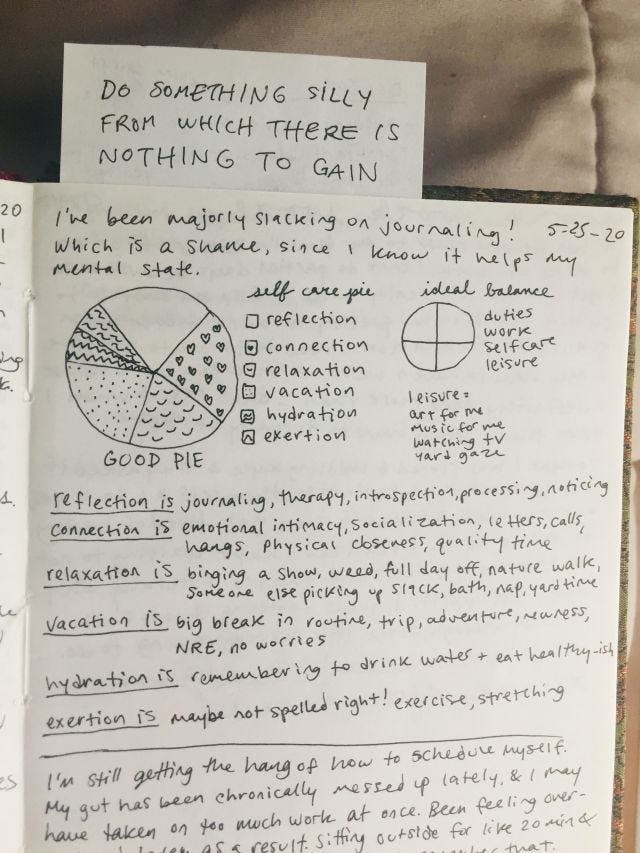 DO SOMETHING SILLY
FROM WHICH THERE IS
NOTHING TO GAIN
20
I've been majorly slacking on journaling! 5-25-20
Which is a shame, since I know it helps my
mental state.
self care pie
reflection
connection
relaxation
vacation
hydration
exertion
GOOD PIE
ideal balance
duties
work
selfcare
leisure
leisure=
art for me
music for me
watching TV
yard gaze
reflection is journaling, therapy, introspection, processing, noticing
connection is emotional intimacy, socialization, letters, calls,
hangs, physical closeness, quality time
relaxation is binging a show, weed, full day off, nature walk,
someone else picking up slack, bath, nap, yard time
vacation is big break in routine, trip, adventure, newness,
NRE, no worries
hydration is remembering to drink water + eat healthy-ish
exertion is maybe not spelled right! exercise, stretching
I'm still getting the hang of how to schedule myself.
My gut has been chronically messed up lately, & I may
have taken on too much work at once. Been feeling over-
as a result. Sitting outside for like 20 min &
that.